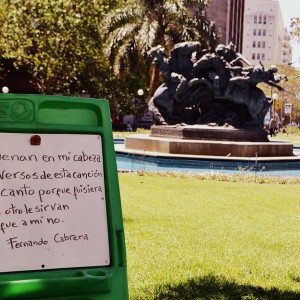 uenan en mi cabeza
versos de esta canción
canto porque quisiera
otro le sirvan
que a mí no.
Fernando Cabrera